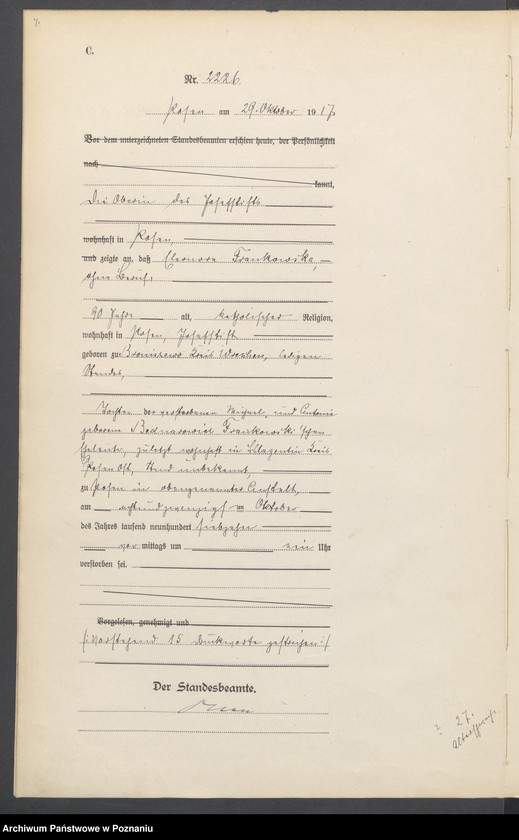 C.
Nr. 2226
Posen am 29. Oktober 1917
Vor dem unterzeichneten Standesbeamten erschien heute, der Persönlichkeit
nach
kannt,
Die Oberin des Josefstifts
wohnhaft in Posen,
und zeigte an, daß Eleonore Frankowska,
ohne Beruf,
90 Jahre alt, katholischer Religion,
wohnhaft in Posen, Josefstift
geboren zu Kreis Wreschen, ledigen
Standes,
Tochter der verstorbenen Michael und Antonie
geborene Bednarowicz Frankowski'schen
Eheleute, zuletzt wohnhaft in Kreis
Posen Ost, Stand unbekannt,
zu Posen in obengenannter Anstalt,
am achtundzwanzigsten Oktober
des Jahres tausend neunhundert siebzehn
vor mittags um ein Uhr
verstorben sei.
Vorgelesen, genehmigt und
/: Vorstehend 15 Druckworte gestrichen :/
Der Standesbeamte.
27.
Archiwum Państwowe w Poznaniu